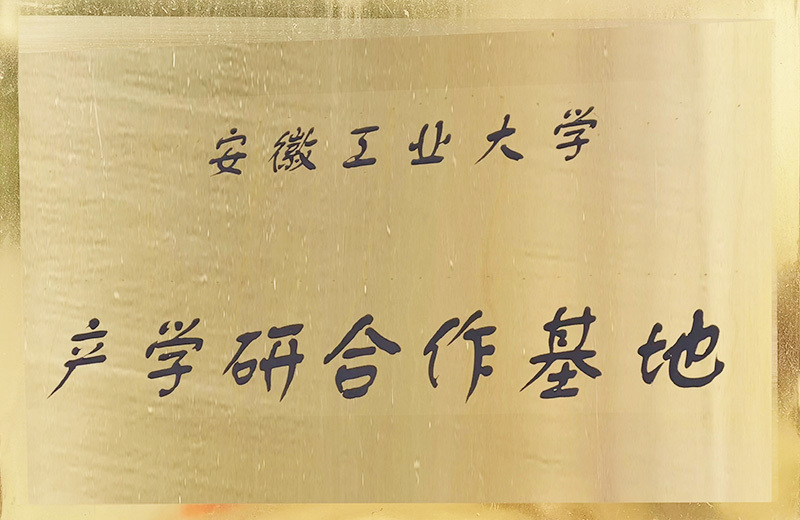 安徽工业大学
产学研合作基地